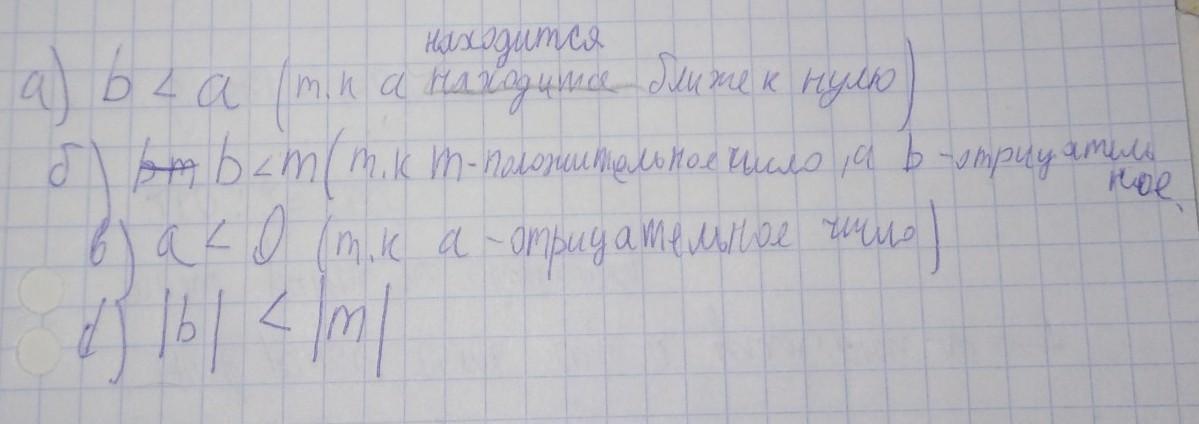 находится
а) b < a (т.к а находится ближе к нулю)
б) bm b < m (т.к m-положительное число, а b - отрицатель
ное.
в) a < 0 (т.к а - отрицательное число)
d) |b| < |m|